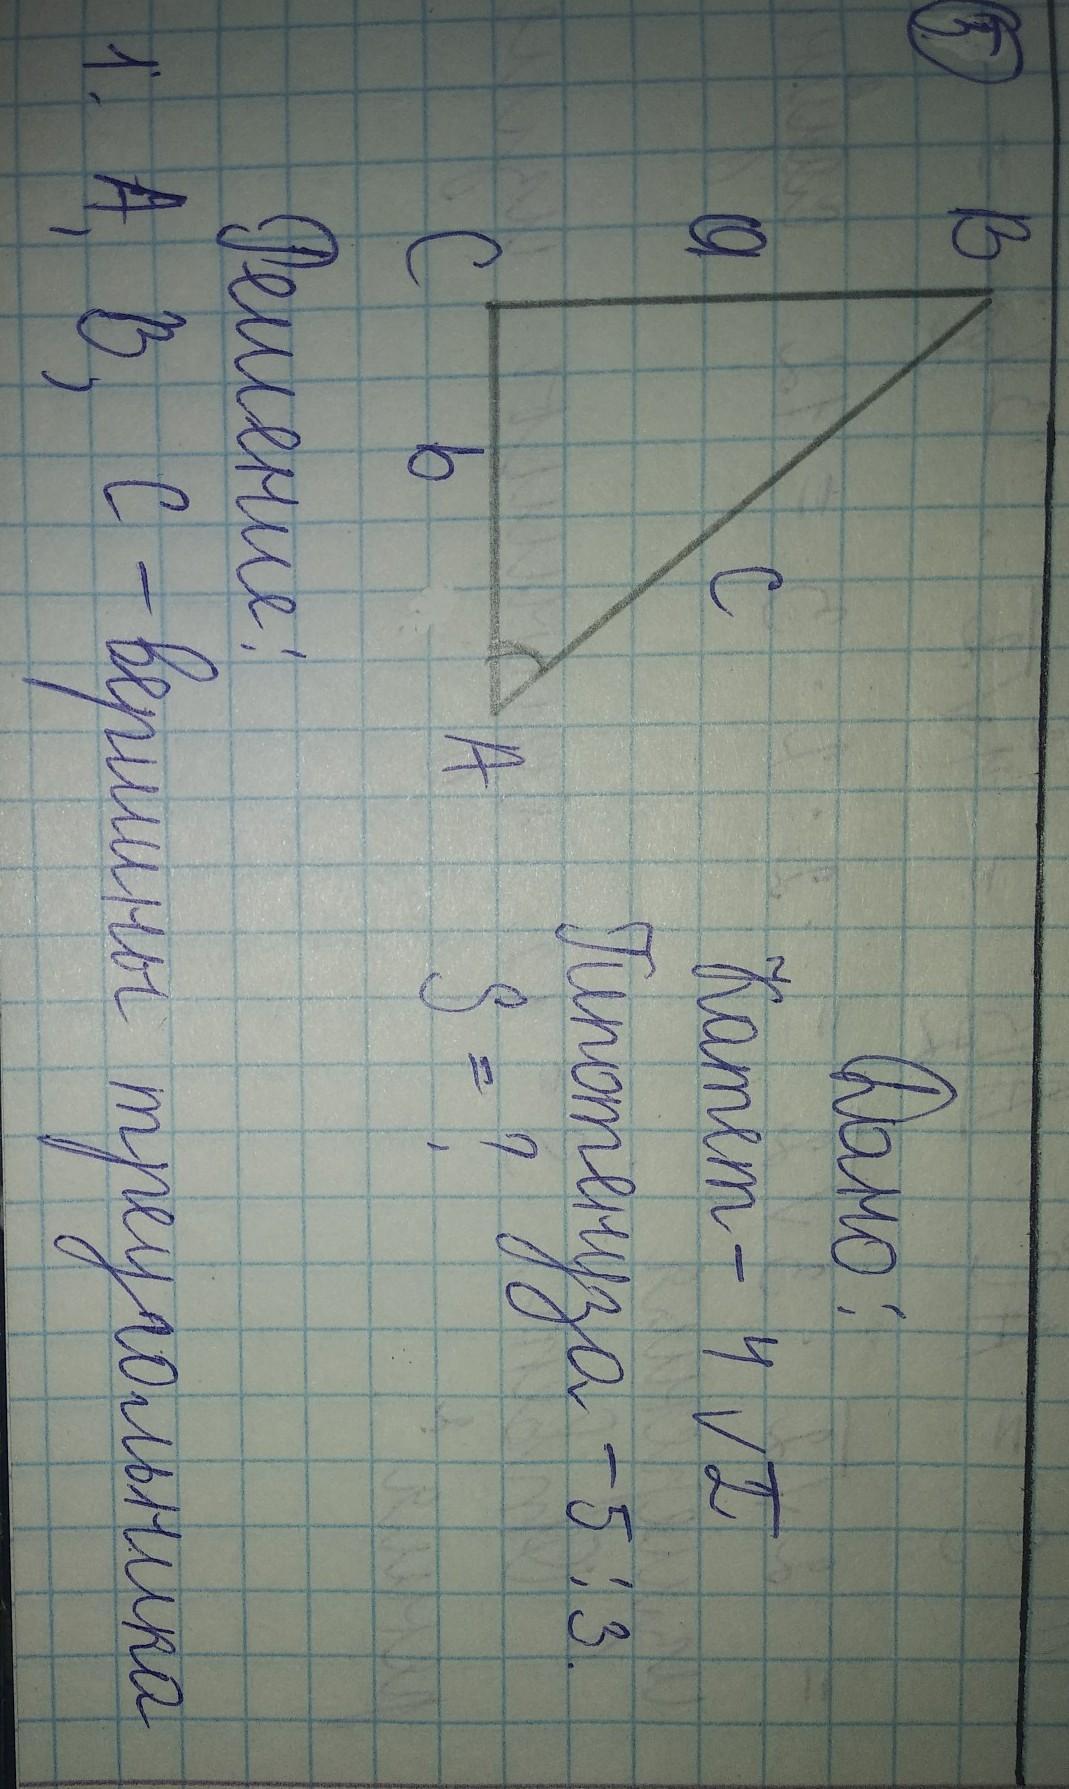 5
B
Дано:
a
c
Катет - 4√2
Гипотенуза - 5:3.
C
b
A
S = ?
Решение:
1. A, B, C - вершины треугольника